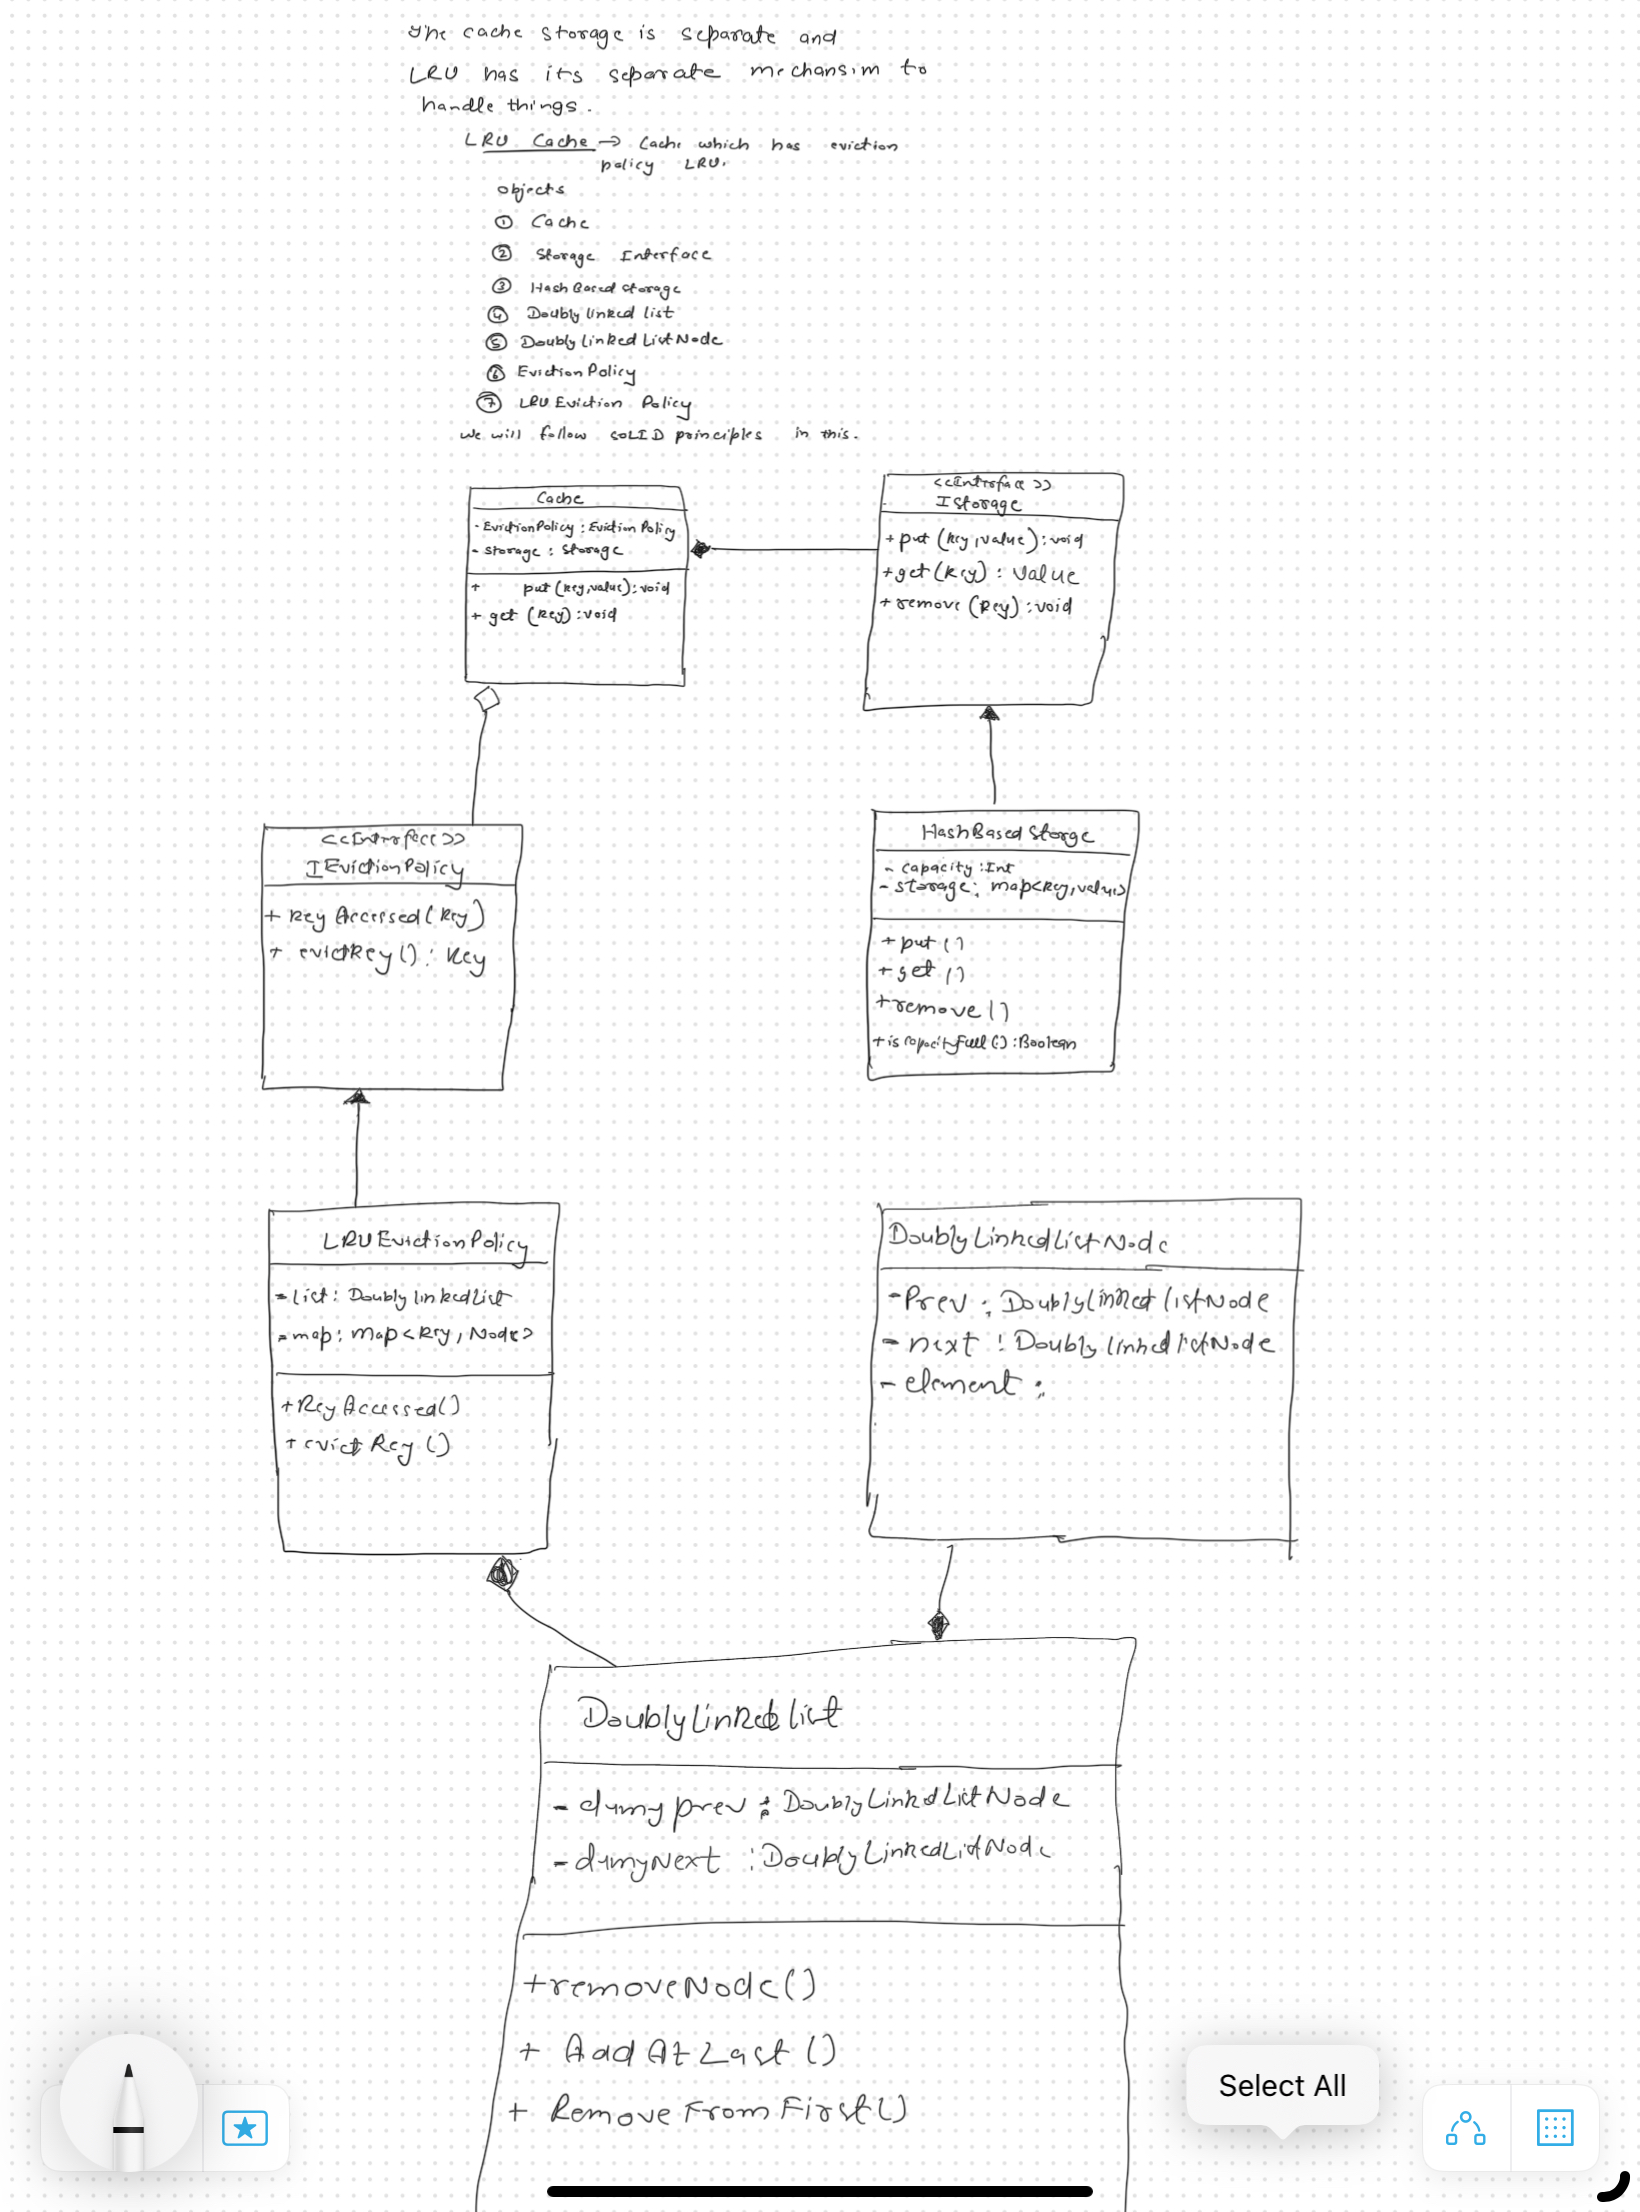 The cache storage is separate and
LRU has its separate mechansim to
handle things.
LRU Cache → Cache which has eviction
policy LRU.
objects
① Cache
② Storage Interface
③ Hash Based storage
④ Doubly linked list
⑤ Doubly linked List Node
⑥ Eviction Policy
⑦ LRU Eviction Policy
we will follow SOLID principles in this.
Cache
- EvictionPolicy : Eviction Policy
- storage : Storage
+ put (key,value) : void
+ get (key) : void
<<Interface>>
IStorage
+ put (key,value) : void
+ get (key) : Value
+ remove (key) : void
<<Interface>>
IEvictionPolicy
+ key Accessed (key)
+ evictkey () : Key
HashBased Storge
- capacity : Int
- storage : map<key,value>
+ put ()
+ get ()
+ remove ()
+ is capacityFull () : Boolean
LRU EvictionPolicy
- list : Doubly linkedList
- map : Map<key, Node>
+ Key Accessed ()
+ evict Key ()
Doubly Linked List Node
- Prev : Doubly Linked listNode
- next : Doubly linked listNode
- element :
Doubly Linked list
- dumy prev : Doubly Linked List Node
- dumyNext : Doubly LinkedListNode
+ removeNode ()
+ Add At Last ()
+ Remove From First ()
Select All